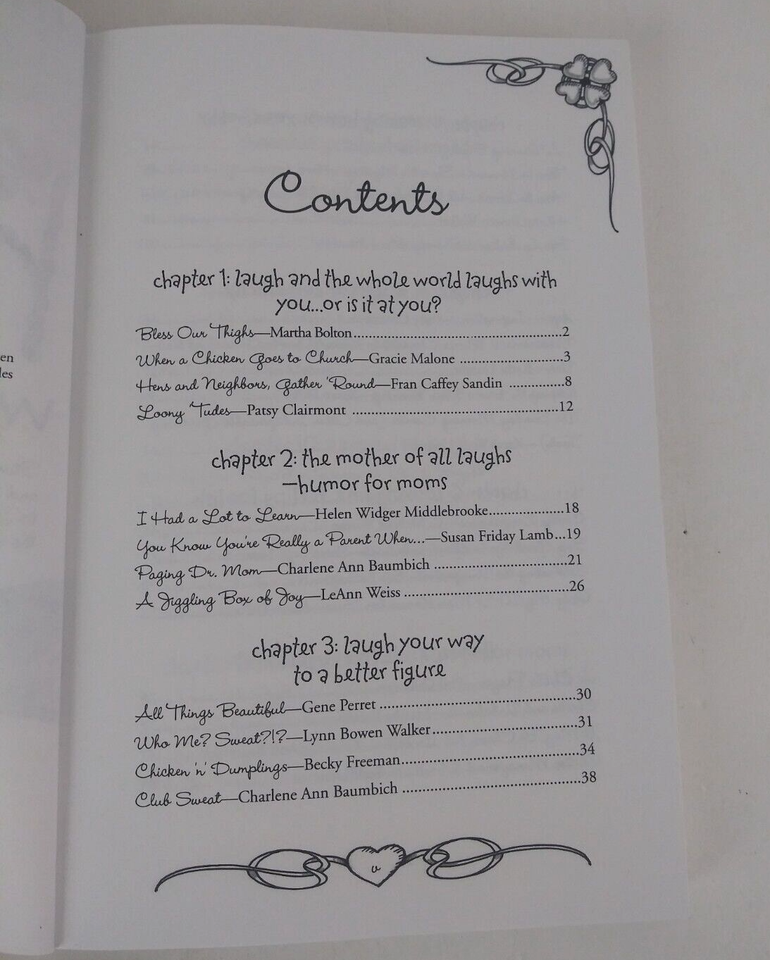 en
les
Contents
chapter 1: laugh and the whole world laughs with
you...or is it at you?
Bless Our Thighs—Martha Bolton.....................................................2
When a Chicken Goes to Church—Gracie Malone ..........................3
Hens and Neighbors, Gather 'Round—Fran Caffey Sandin ..............8
Loony Tudes—Patsy Clairmont .....................................................12
chapter 2: the mother of all laughs
—humor for moms
I Had a Lot to Learn—Helen Widger Middlebrooke...................18
You Know You're Really a Parent When...—Susan Friday Lamb...19
Paging Dr. Mom—Charlene Ann Baumbich .................................21
A Jiggling Box of Joy—LeAnn Weiss .........................................26
chapter 3: laugh your way
to a better figure
All Things Beautiful—Gene Perret .................................................30
Who Me? Sweat?!?—Lynn Bowen Walker....................................31
Chicken 'n' Dumplings—Becky Freeman............................................34
Club Sweat—Charlene Ann Baumbich ............................................38
v